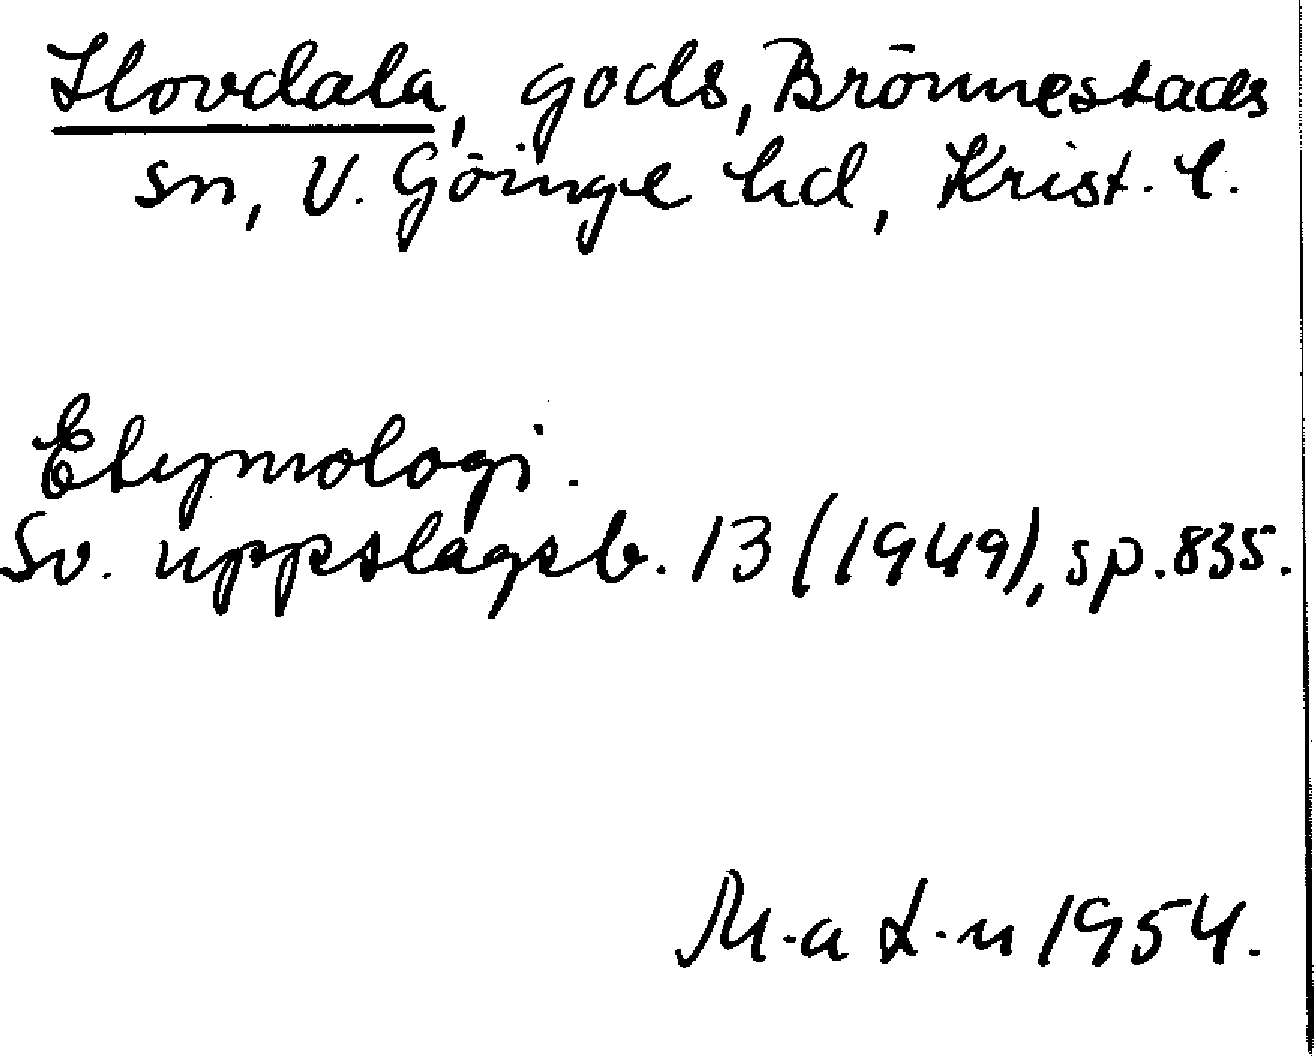 Hovdala, gods, Brönnestads
sn, V. Göinge hd, Krist. l.
Etymologi.
Sv. uppslagsb. 13 (1949), sp. 835.
M-a L-n 1954.